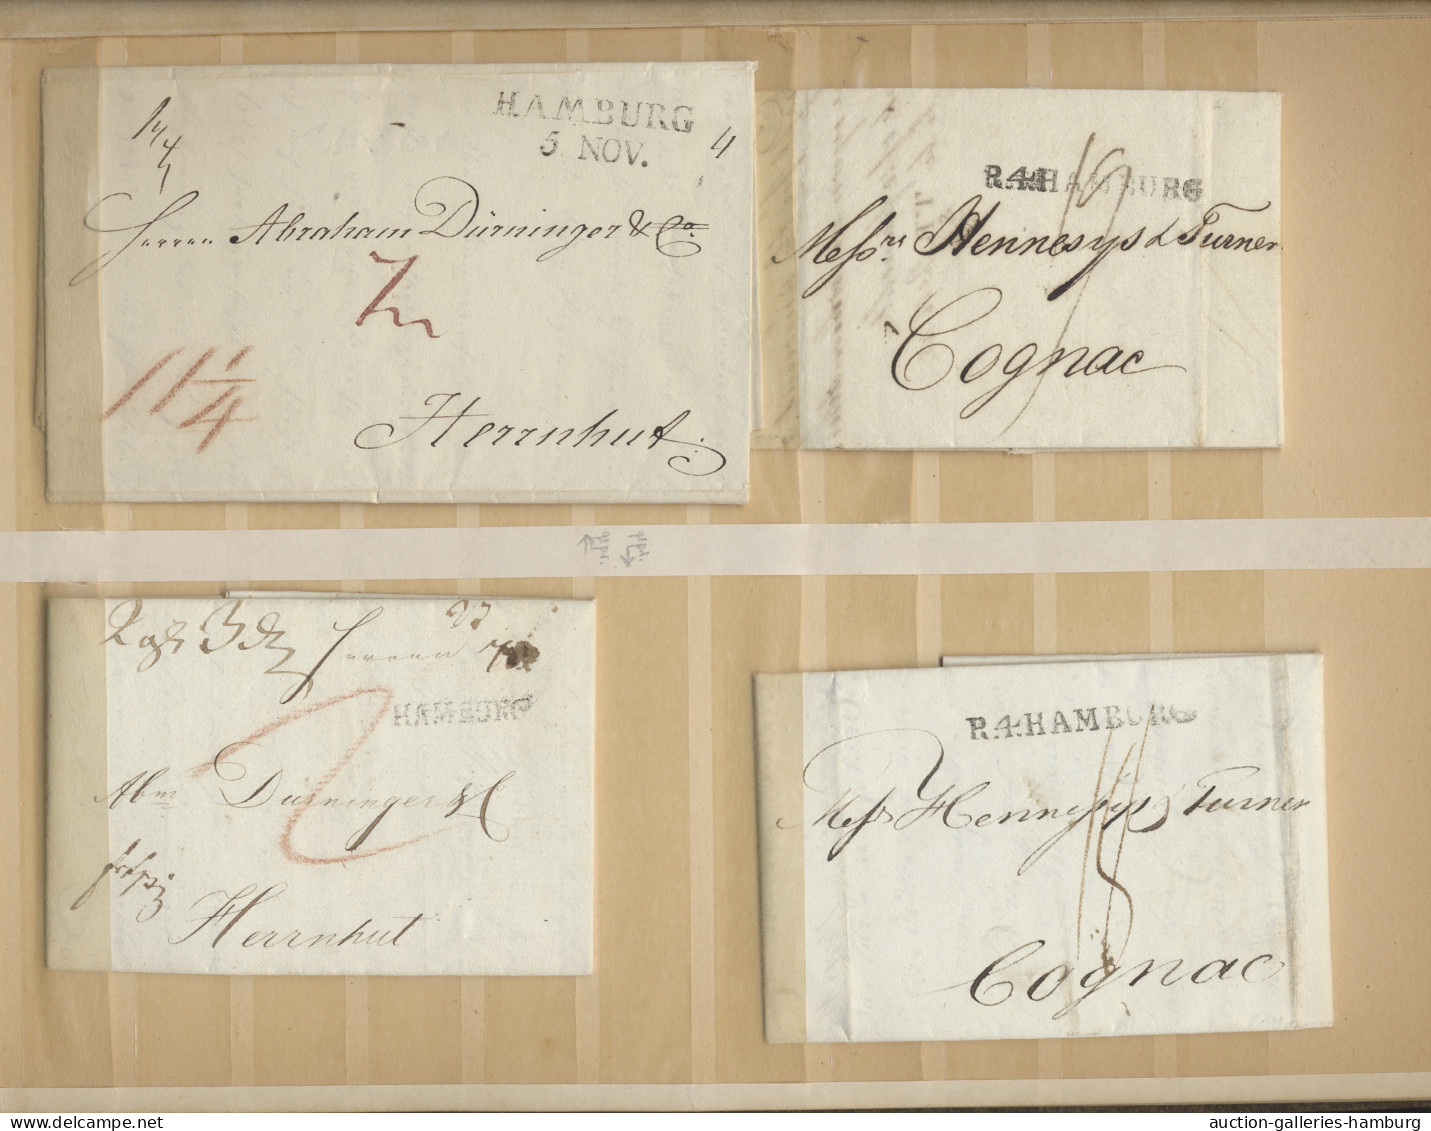 HAMBURG
5 NOV.
4
Herren Abraham Dürninger & Co.
11 1/4
Herrnhut
R.4.HAMBURG
Messrs Hennesys & Turner
Cognac
Herren
HAMBURG
Abm Dürninger & C
Herrnhut
R.4.HAMBURG
Messrs Hennessys & Turner
Cognac
auction-galleries-hamburg